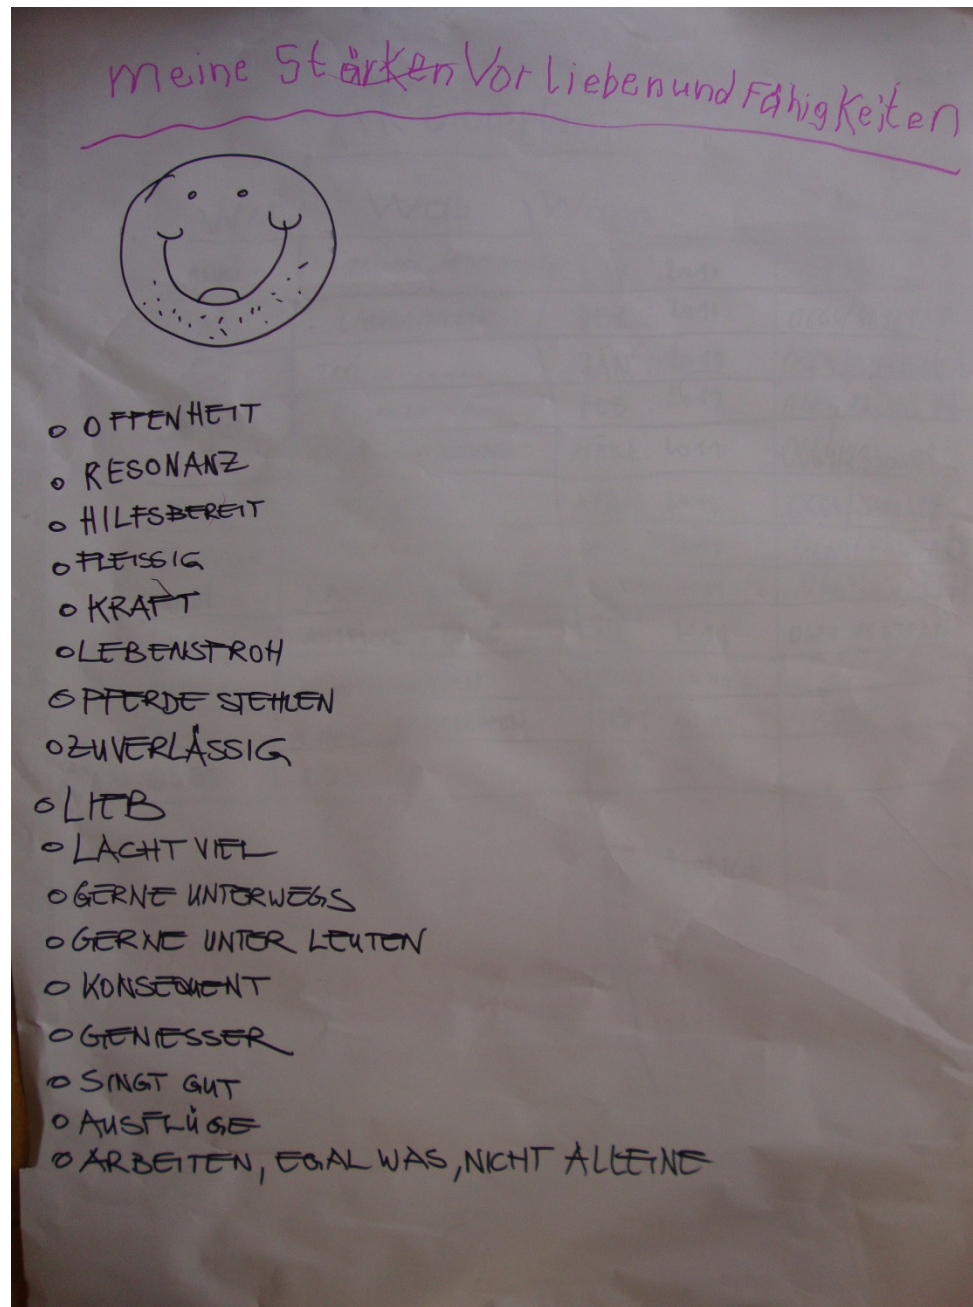 meine Stärken Vorlieben und Fähigkeiten
o OFFENHEIT
o RESONANZ
o HILFSBEREIT
o FLEISSIG
o KRAFT
o LEBENSFROH
o PFERDE STEHLEN
o ZUVERLÄSSIG
o LIEB
o LACHT VIEL
o GERNE UNTERWEGS
o GERNE UNTER LEUTEN
o KONSEQUENT
o GENIESSER
o SINGT GUT
o AUSFLÜGE
o ARBEITEN, EGAL WAS, NICHT ALLEINE